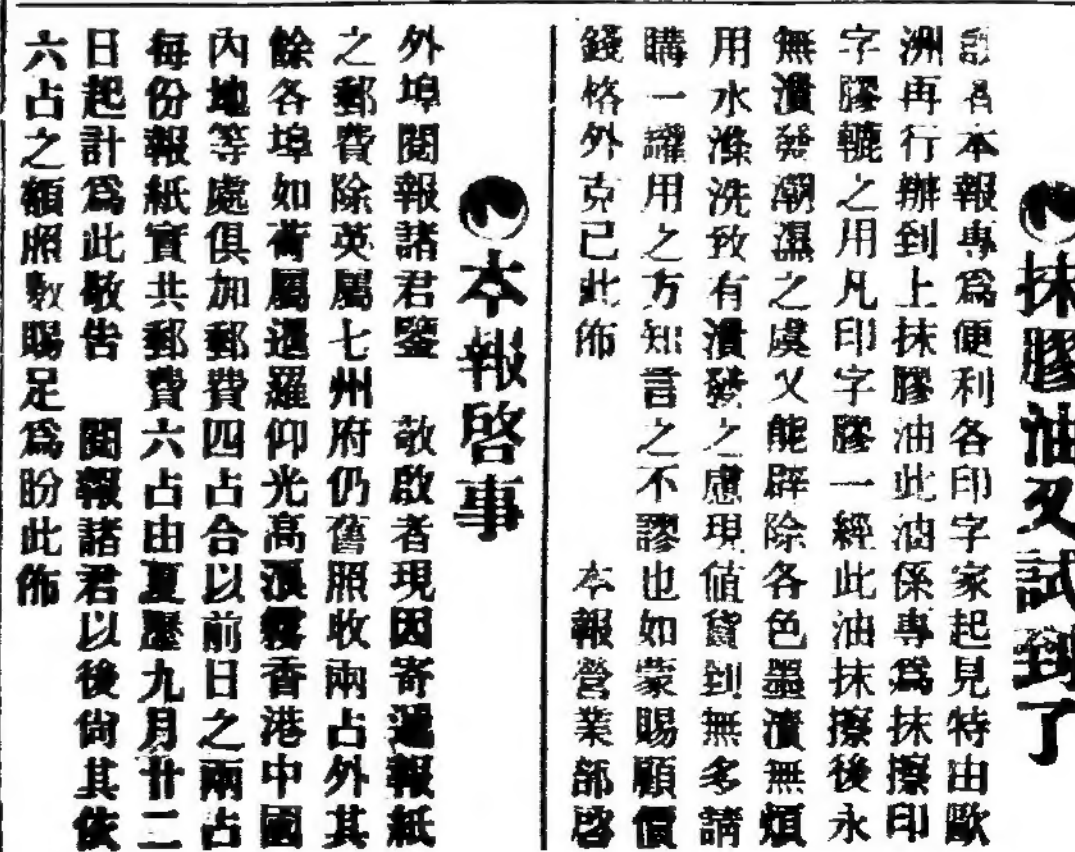 抹膠油又試到了
啟者本報專爲便利各印字家起見特由歐
洲再行辦到上抹膠油此油係專爲抹擦印
字膠轆之用凡印字膠一經此油抹擦後永
無潰發潮濕之虞又能辟除各色墨漬無煩
用水滌洗致有潰發之慮現値貨到無多請
購一罐用之方知言之不謬也如蒙賜顧價
錢格外克己此佈　本報營業部啓
本報啓事
外埠閱報諸君鑒　敬啟者現因寄遞報紙
之郵費除英屬七州府仍舊照收兩占外其
餘各埠如荷屬暹羅仰光高香港中國
內地等處俱加郵費四占合以前日之兩占
每份報紙實共郵費六占由夏曆九月廿二
日起計爲此敬告　閱報諸君以後尙其依
六占之額照數賜足爲盼此佈